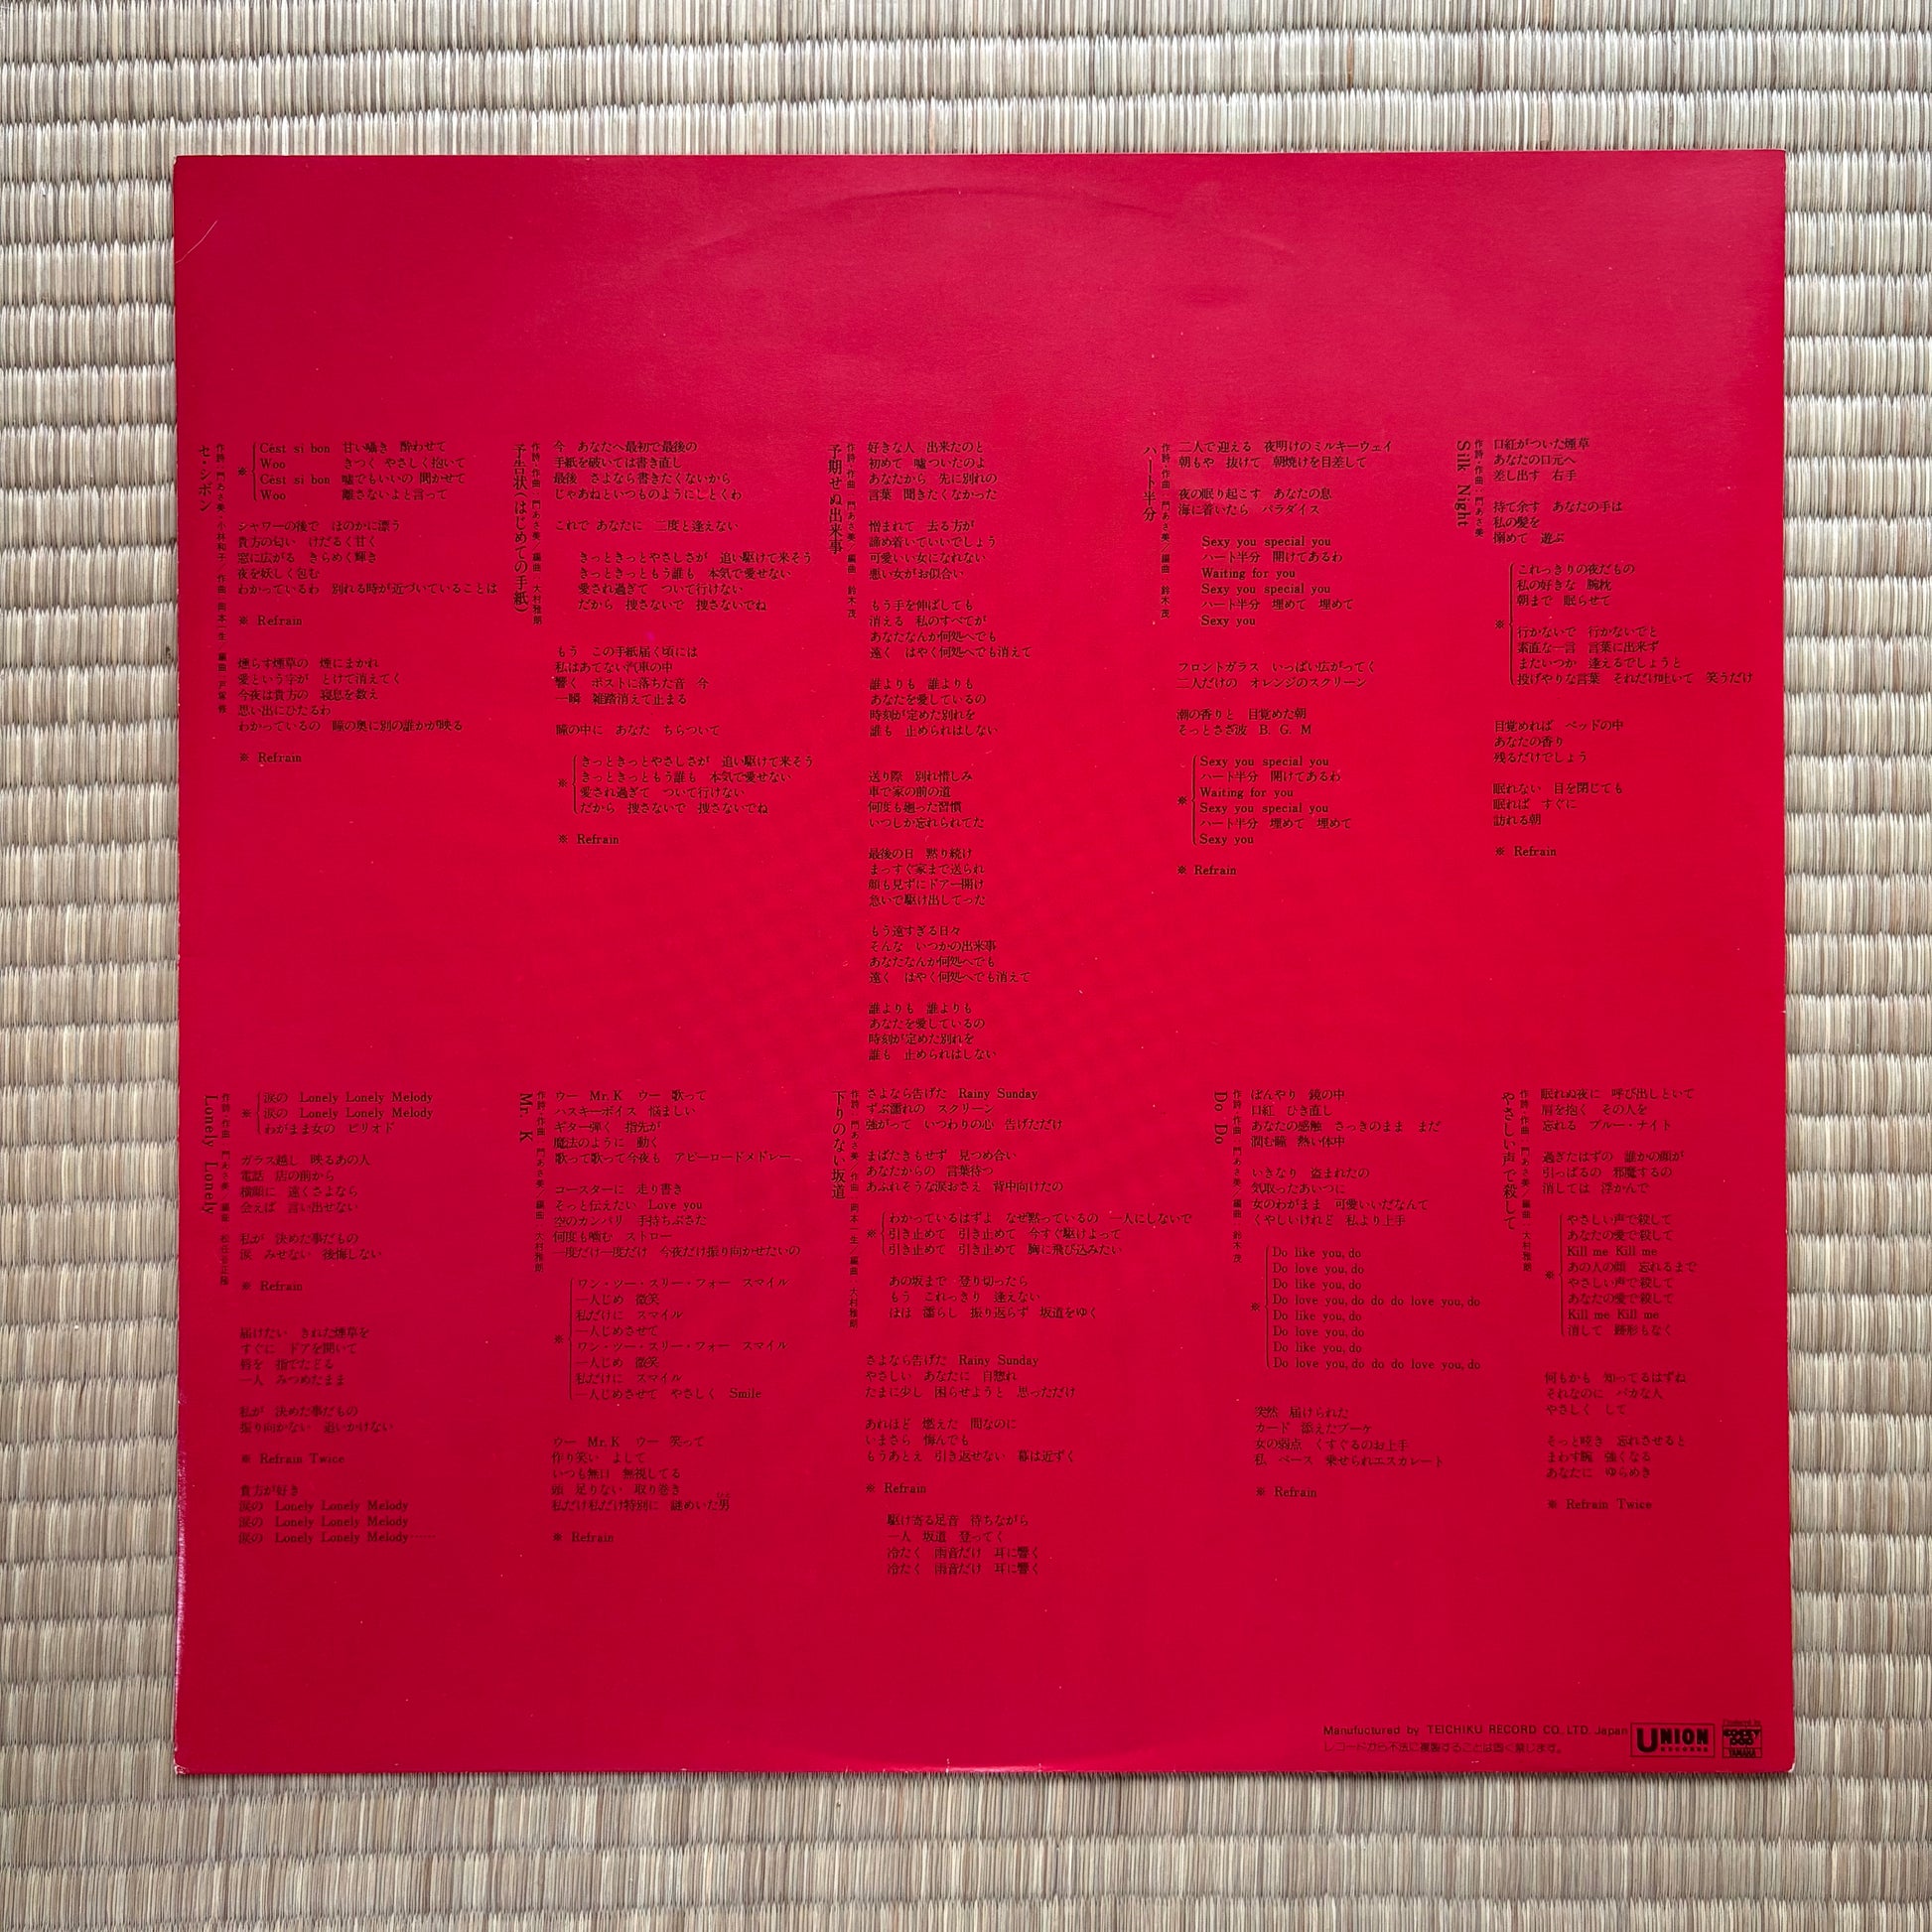 セ・シボン
作詩 門あさ美・小林和子 作曲 岡本一生 編曲 戸塚修
※
Cést si bon 甘い囁き 酔わせて
Woo きつく やさしく抱いて
Cést si bon 嘘でもいいの 聞かせて
Woo 離さないよと言って
シャワーの後で ほのかに漂う
貴方の匂い けだるく甘く
窓に広がる きらめく輝き
夜を妖しく包む
わかっているわ 別れる時が近づいていることは
※ Refrain
燻らす煙草の 煙にまかれ
愛という字が とけて消えてく
今夜は貴方の 寝息を数え
思い出にひたるわ
わかっているの 瞳の奥に別の誰かが映る
※ Refrain
予告状(はじめての手紙)
作詩・作曲 門あさ美/編曲 大村雅朗
今 あなたへ最初で最後の
手紙を破いては書き直し
最後 さよなら書きたくないから
じゃあねといつものようにしとくわ
これで あなたに 二度と逢えない
きっときっとやさしさが 追い駆けて来そう
きっときっともう誰も 本気で愛せない
愛され過ぎて ついて行けない
だから 捜さないで 捜さないでね
もう この手紙届く頃には
私はあてない汽車の中
響く ポストに落ちた音 今
一瞬 雑踏消えて止まる
瞳の中に あなた ちらついて
※
きっときっとやさしさが 追い駆けて来そう
きっときっともう誰も 本気で愛せない
愛され過ぎて ついて行けない
だから 捜さないで 捜さないでね
※ Refrain
予期せぬ出来事
作詩・作曲 門あさ美/編曲 鈴木茂
好きな人 出来たのと
初めて 嘘ついたのよ
あなたから 先に別れの
言葉 聞きたくなかった
憎まれて 去る方が
諦め着いていいでしょう
可愛いい女になれない
悪い女がお似合い
もう手を伸ばしても
消える 私のすべてが
あなたなんか何処へでも
遠く はやく何処へでも消えて
誰よりも 誰よりも
あなたを愛しているの
時刻が定めた別れを
誰も 止められはしない
送り際 別れ惜しみ
車で家の前の道
何度も廻った習慣
いつしか忘れられてた
最後の日 黙り続け
まっすぐ家まで送られ
顔も見ずにドアー開け
急いで駆け出してった
もう遠すぎる日々
そんな いつかの出来事
あなたなんか何処へでも
遠く はやく何処へでも消えて
誰よりも 誰よりも
あなたを愛しているの
時刻が定めた別れを
誰も 止められはしない
ハート半分
作詩・作曲 門あさ美/編曲 鈴木茂
二人で迎える 夜明けのミルキーウェイ
朝もや 抜けて 朝焼けを目差して
夜の眠り起こす あなたの息
海に着いたら パラダイス
Sexy you special you
ハート半分 開けてあるわ
Waiting for you
Sexy you special you
ハート半分 埋めて 埋めて
Sexy you
フロントガラス いっぱい広がってく
二人だけの オレンジのスクリーン
潮の香りと 目覚めた朝
そっとさざ波 B. G. M
※
Sexy you special you
ハート半分 開けてあるわ
Waiting for you
Sexy you special you
ハート半分 埋めて 埋めて
Sexy you
※ Refrain
Silk Night
作詩・作曲 門あさ美
口紅がついた煙草
あなたの口元へ
差し出す 右手
持て余す あなたの手は
私の髪を
搦めて 遊ぶ
※
これっきりの夜だもの
私の好きな 腕枕
朝まで 眠らせて
行かないで 行かないでと
素直な一言 言葉に出来ず
またいつか 逢えるでしょうと
投げやりな言葉 それだけ吐いて 笑うだけ
目覚めれば ベッドの中
あなたの香り
残るだけでしょう
眠れない 目を閉じても
眠れば すぐに
訪れる朝
※ Refrain
Lonely Lonely
作詩・作曲 門あさ美/編曲 松任谷正隆
※
涙の Lonely Lonely Melody
涙の Lonely Lonely Melody
わがまま女の ピリオド
ガラス越し 映るあの人
電話 店の前から
横顔に 遠くさよなら
会えば 言い出せない
私が 決めた事だもの
涙 みせない 後悔しない
※ Refrain
届けたい きれた煙草を
すぐに ドアを開いて
唇を 指でたどる
一人 みつめたまま
私が 決めた事だもの
振り向かない 追いかけない
※ Refrain Twice
貴方が好き
涙の Lonely Lonely Melody
涙の Lonely Lonely Melody
涙の Lonely Lonely Melody……
Mr. K
作詩・作曲 門あさ美/編曲 大村雅朗
ウー Mr. K ウー 歌って
ハスキーボイス 悩ましい
ギター弾く 指先が
魔法のように 動く
歌って歌って今夜も アビーロードメドレー
コースターに 走り書き
そっと伝えたい Love you
空のカンパリ 手持ちぶさた
何度も噛む ストロー
一度だけ一度だけ 今夜だけ振り向かせたいの
※
ワン・ツー・スリー・フォー スマイル
一人じめ 微笑
私だけに スマイル
一人じめさせて
ワン・ツー・スリー・フォー スマイル
一人じめ 微笑
私だけに スマイル
一人じめさせて やさしく Smile
ウー Mr. K ウー 笑って
作り笑い よして
いつも無口 無視してる
顔 足りない 取り巻き
私だけ私だけ特別に 謎めいた男
※ Refrain
下りのない坂道
作詩 門あさ美 作曲 岡本一生/編曲 大村雅朗
さよなら告げた Rainy Sunday
ずぶ濡れの スクリーン
強がって いつわりの心 告げただけ
まばたきもせず 見つめ合い
あなたからの 言葉待つ
あふれそうな涙おさえ 背中向けたの
※
わかっているはずよ なぜ黙っているの 一人にしないで
引き止めて 引き止めて 今すぐ駆けよって
引き止めて 引き止めて 胸に飛び込みたい
あの坂まで 登り切ったら
もう これっきり 逢えない
ほほ 濡らし 振り返らず 坂道をゆく
さよなら告げた Rainy Sunday
やさしい あなたに 自惚れ
たまに少し 困らせようと 思っただけ
あれほど 燃えた 間なのに
いまさら 悔んでも
もうあとえ 引き返せない 幕は近ずく
※ Refrain
駆け寄る足音 待ちながら
一人 坂道 登ってく
冷たく 雨音だけ 耳に響く
冷たく 雨音だけ 耳に響く
Do Do
作詩・作曲 門あさ美/編曲 鈴木茂
ぼんやり 鏡の中
口紅 ひき直し
あなたの感触 さっきのまま まだ
潤む瞳 熱い体中
いきなり 盗まれたの
気取ったあいつに
女のわがまま 可愛いいだなんて
くやしいけれど 私より上手
※
Do like you, do
Do love you, do
Do like you, do
Do love you, do do do love you, do
Do like you, do
Do love you, do
Do like you, do
Do love you, do do do love you, do
突然 届けられた
カード 添えたブーケ
女の弱点 くすぐるのお上手
私 ペース 乗せられエスカレート
※ Refrain
やさしい声で殺して
作詩・作曲 門あさ美/編曲 大村雅朗
眠れぬ夜に 呼び出しといて
肩を抱く その人を
忘れる ブルー・ナイト
過ぎたはずの 誰かの顔が
引っぱるの 邪魔するの
消しては 浮かんで
※
やさしい声で殺して
あなたの愛で殺して
Kill me Kill me
あの人の顔 忘れるまで
やさしい声で殺して
あなたの愛で殺して
Kill me Kill me
消して 跡形もなく
何もかも 知ってるはずね
それなのに バカな人
やさしく して
そっと呟き 忘れさせると
まわす腕 強くなる
あなたに ゆらめき
※ Refrain Twice
Manufuctured by TEICHIKU RECORD CO., LTD. Japan
レコードから不法に複製することは固く禁じます。
UNION RECORDS